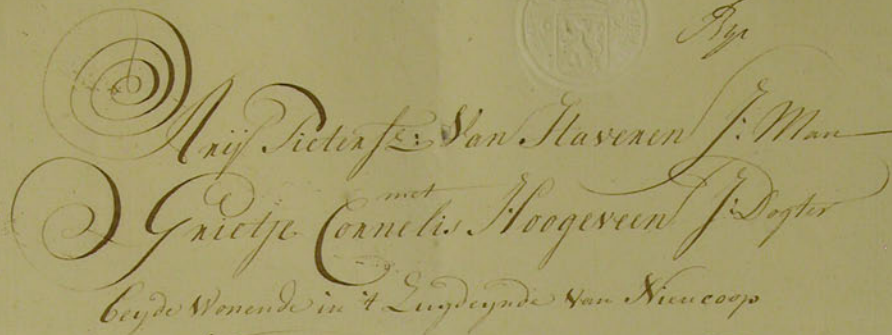 Arij Pieterse: Van Haveren J: Man
met
Grietje Cornelis Hoogeveen J: Dogter
beyde Wonende in 't Zuydeynde Van Nieucoop